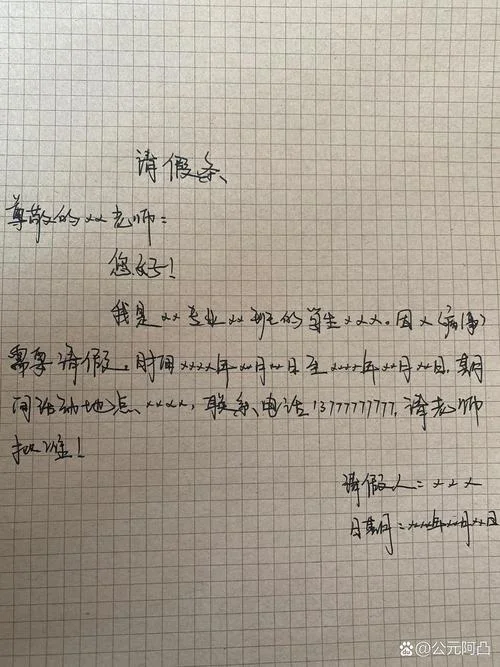 请假条
尊敬的xx老师:
您好!
我是xx专业xx班的学生xxx。因x(病事)
需要请假。时间xxxx年xx月xx日至xxxx年xx月xx日,期
间活动地点xxxx,联系电话13777777777,请老师
批准!
请假人:xxx
日期:xxxx年xx月xx日
百家号/公元阿凸